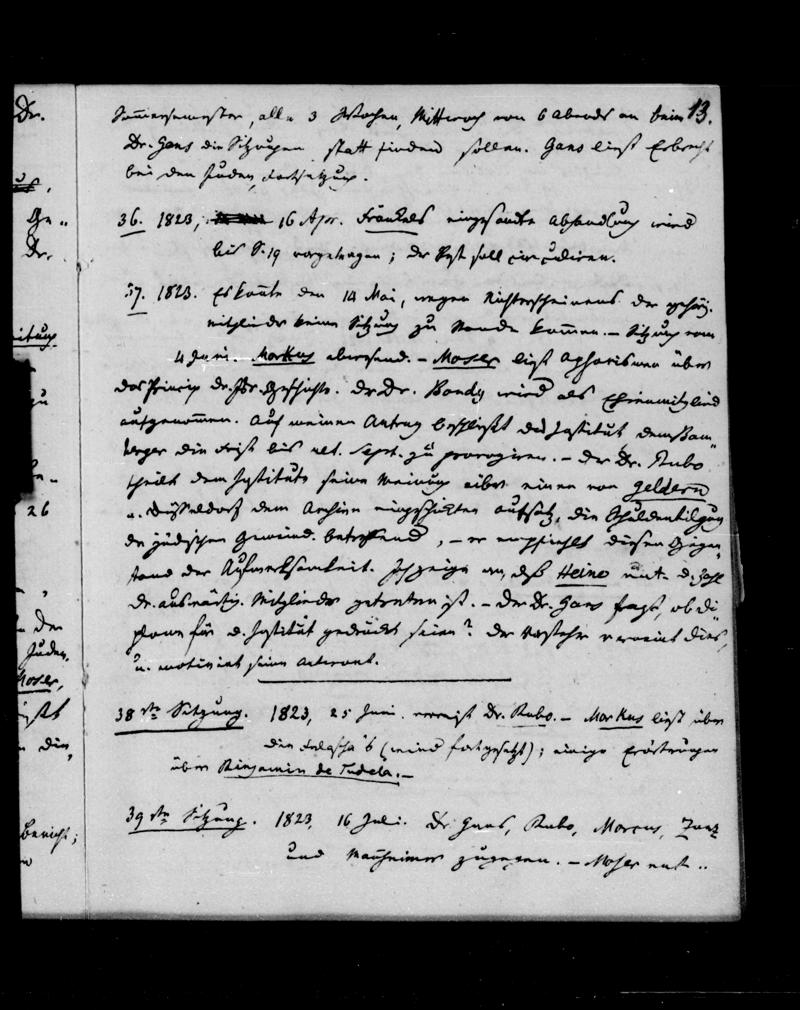 Dr.
Ge..
Dr.
zu
26
der
Juden,
Moser,
Bericht;
13.
Sommersemester, alle 3 Wochen, Mittwoch von 6 Abends an beim
Dr. Gans die Sitzungen statt finden sollen. Gans liest Erbrecht
bei den Juden, Fortsetzung.
36. 1823, 16 Apr. Fränkels eingesandte Abhandlung wird
bis S. 19 vorgetragen; der Rest soll circuliren.
37. 1823. Es konnte den 14 Mai, wegen Nichterscheinens der gehörig.
Mitglieder keine Sitzung zu Stande kommen. – Sitzung vom
4 Juni. Markus abwesend. – Moser liest Aphorismen über
das Princip der Jüd. Geschichte. Der Dr. Bondy wird als Ehrenmitglied
aufgenommen. Auf meinen Antrag beschließt das Institut dem Bam"
berger die Frist bis ult. Sept. zu prorogiren. – Der Dr. Rubo
theilt dem Institute seine Meinung über einen von Geldern
a. Düsseldorf dem Archive eingeschickten Aufsatz, die Schuldentilgung
der jüdischen Gemeind. betreffend, – er empfiehlt diesen Gegen"
stand der Aufmerksamkeit. Ich zeige an, daß Heine unt. d. Zahl
der auswärtig. Mitglieder getreten ist. – Der Dr. Gans fragt, ob Di"
plome für d. Institut gedruckt seien? Der Vorsteher verneint dies,
u. motivirt seine Antwort.
38ste Sitzung. 1823, 25 Juni. verreist Dr. Rubo. – Markus liest über
die Falascha's (wird fortgesetzt); einige Erörterungen
über Binjamin de Tudela. –
39ste Sitzung. 1823, 16 Juli. Dr. Gans, Rubo, Marcus, Zunz
und Mauheimer zugegen. – Moser ent..